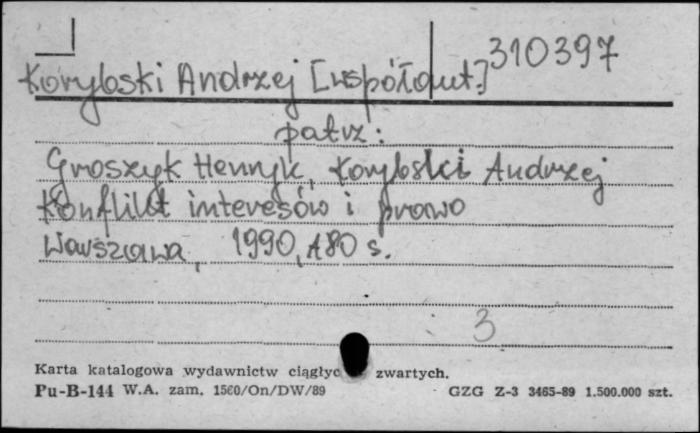 310397
Korybski Andrzej [współaut.]
patrz:
Groszyk Henryk, Korybski Andrzej
Konflikt interesów i prawo
Warszawa, 1990, 180 s.
3
Karta katalogowa wydawnictw ciągłyc zwartych.
Pu-B-144 W.A. zam. 1560/On/DW/89 GZG Z-3 3465-89 1.500.000 szt.